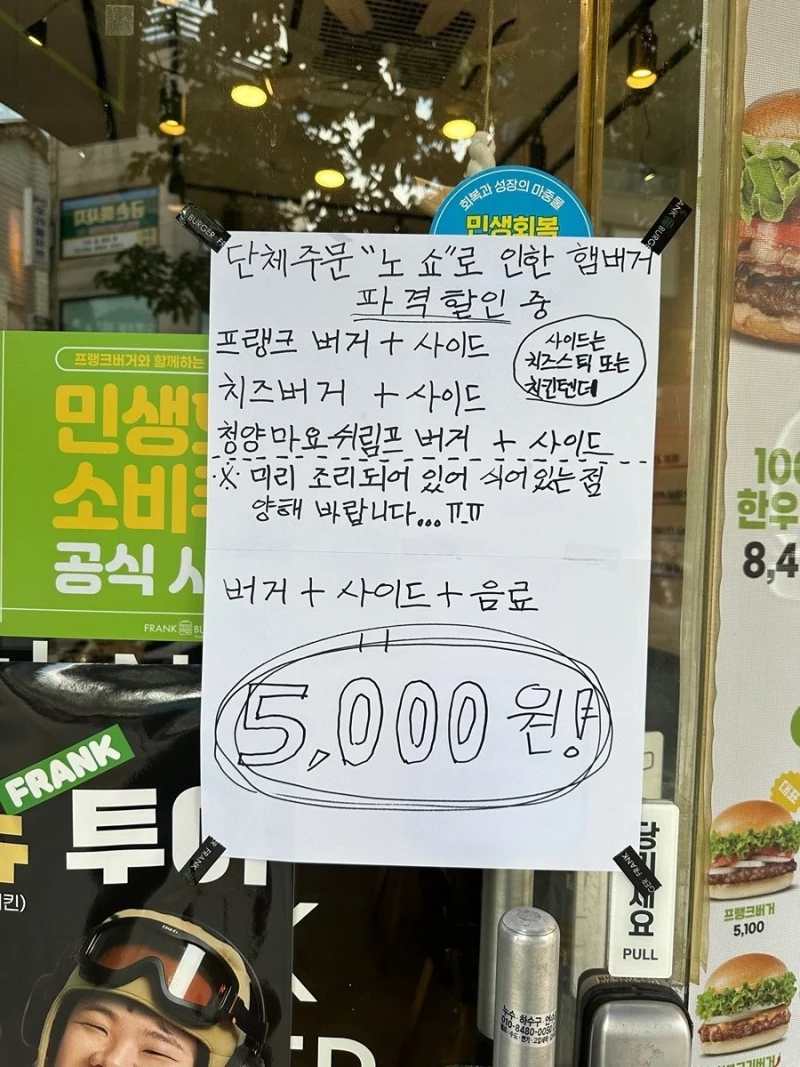 회복과 성장의 마중물
민생회복
BURGER FR
단체주문 "노 쇼"로 인한 햄버거
파격할인 중
프랭크 버거 + 사이드
사이드는
치즈스틱 또는
치킨텐더
치즈버거 + 사이드
청양마요쉬림프 버거 + 사이드
※ 미리 조리되어 있어 식어있는점
양해 바랍니다...ㅠ_ㅠ
버거 + 사이드 + 음료
5,000 원!
프랭크버거와 함께하는
민생
소비
공식
FRANK BU
FRANK
투
FRANK
PULL
한우
8,4
프랭크버거
5,100
누수 하수구